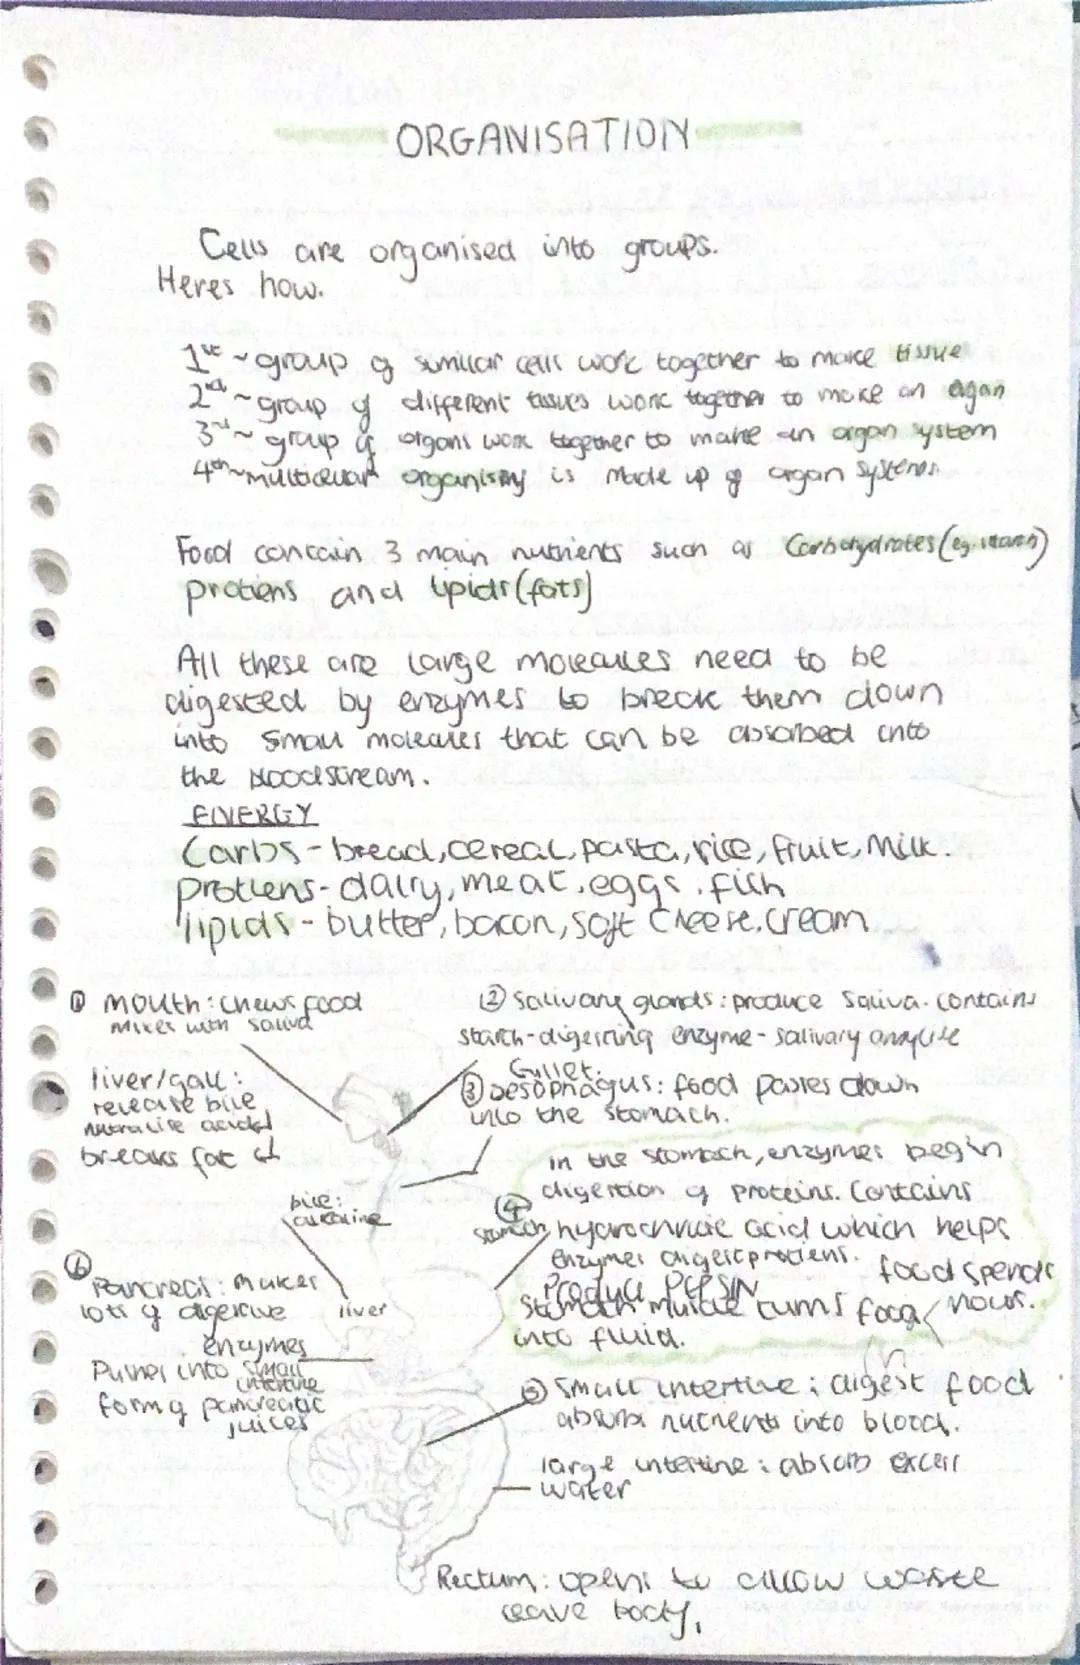 ORGANISATION
Cells are organised into groups.
Heres how.
1st ~ group of similar cells work together to make tissue
2nd ~ group of different tissues work together to make an organ
3rd ~ group of organs work together to make an organ system
4th ~ organism is made up of organ systems.
Food contain 3 main nutrients such as Carbohydrates (eg. starch)
protiens and lipids (fats)
All these are large molecules need to be
digested by enzymes to break them down
into small molecules that can be absorbed into
the bloodstream.
ENERGY
Carbs - bread, cereal, pasta, rice, fruit, Milk.
protiens - dairy, meat, eggs, fish
lipids - butter, bacon, soft cheese, cream
① mouth: chews food
mixes with saliva
② Salivary glands: produce saliva. contains
starch-digesting enzyme - salivary
Gullet.
③ oesophagus: food passes down
into the stomach.
liver/gall:
release bile
breaks fat
bile:
alkaline
liver
④ stomach
in the stomach, enzymes begin
digestion of proteins. Contains
acid which helps
enzymes digest protiens.
Produce PEPSIN
stomach muscle turns food
into fluid.
food spends
hours.
⑥
Pancreas: makes
lots of digestive
enzymes
into small
intestine
form of pancreatic
juices
⑤ small intestine: digest food
absorbs nutrients into blood.
large intestine: absorb excess
water
Rectum: opens to allow waste
leave body.